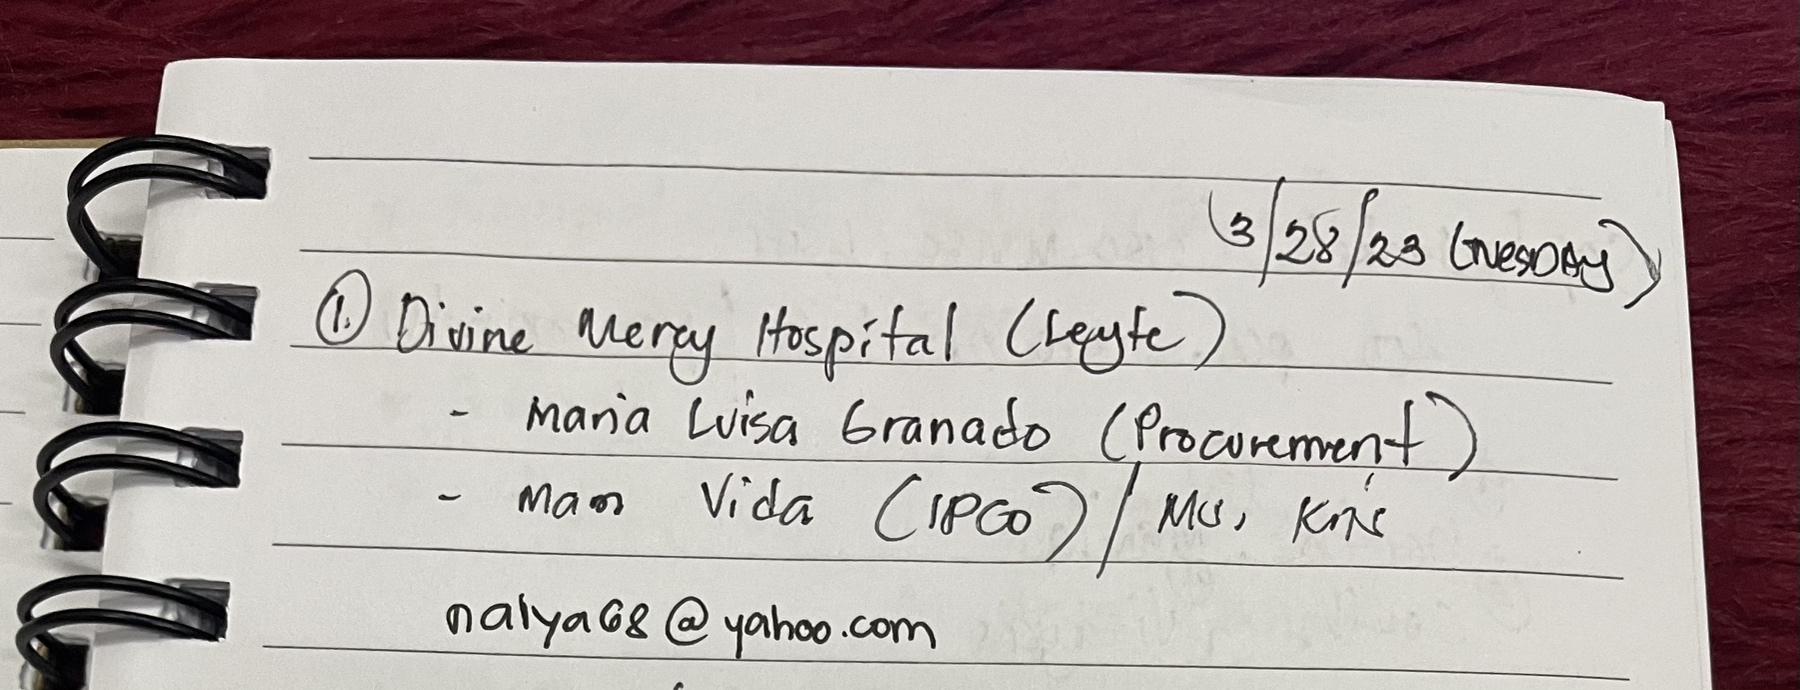 (3/28/23 (TUESDAY)
①. Divine Mercy Hospital (Leyte)
- Maria Luisa Granado (Procurement)
- Mam Vida (IPCO) / Ms. Kris
nalya68@yahoo.com